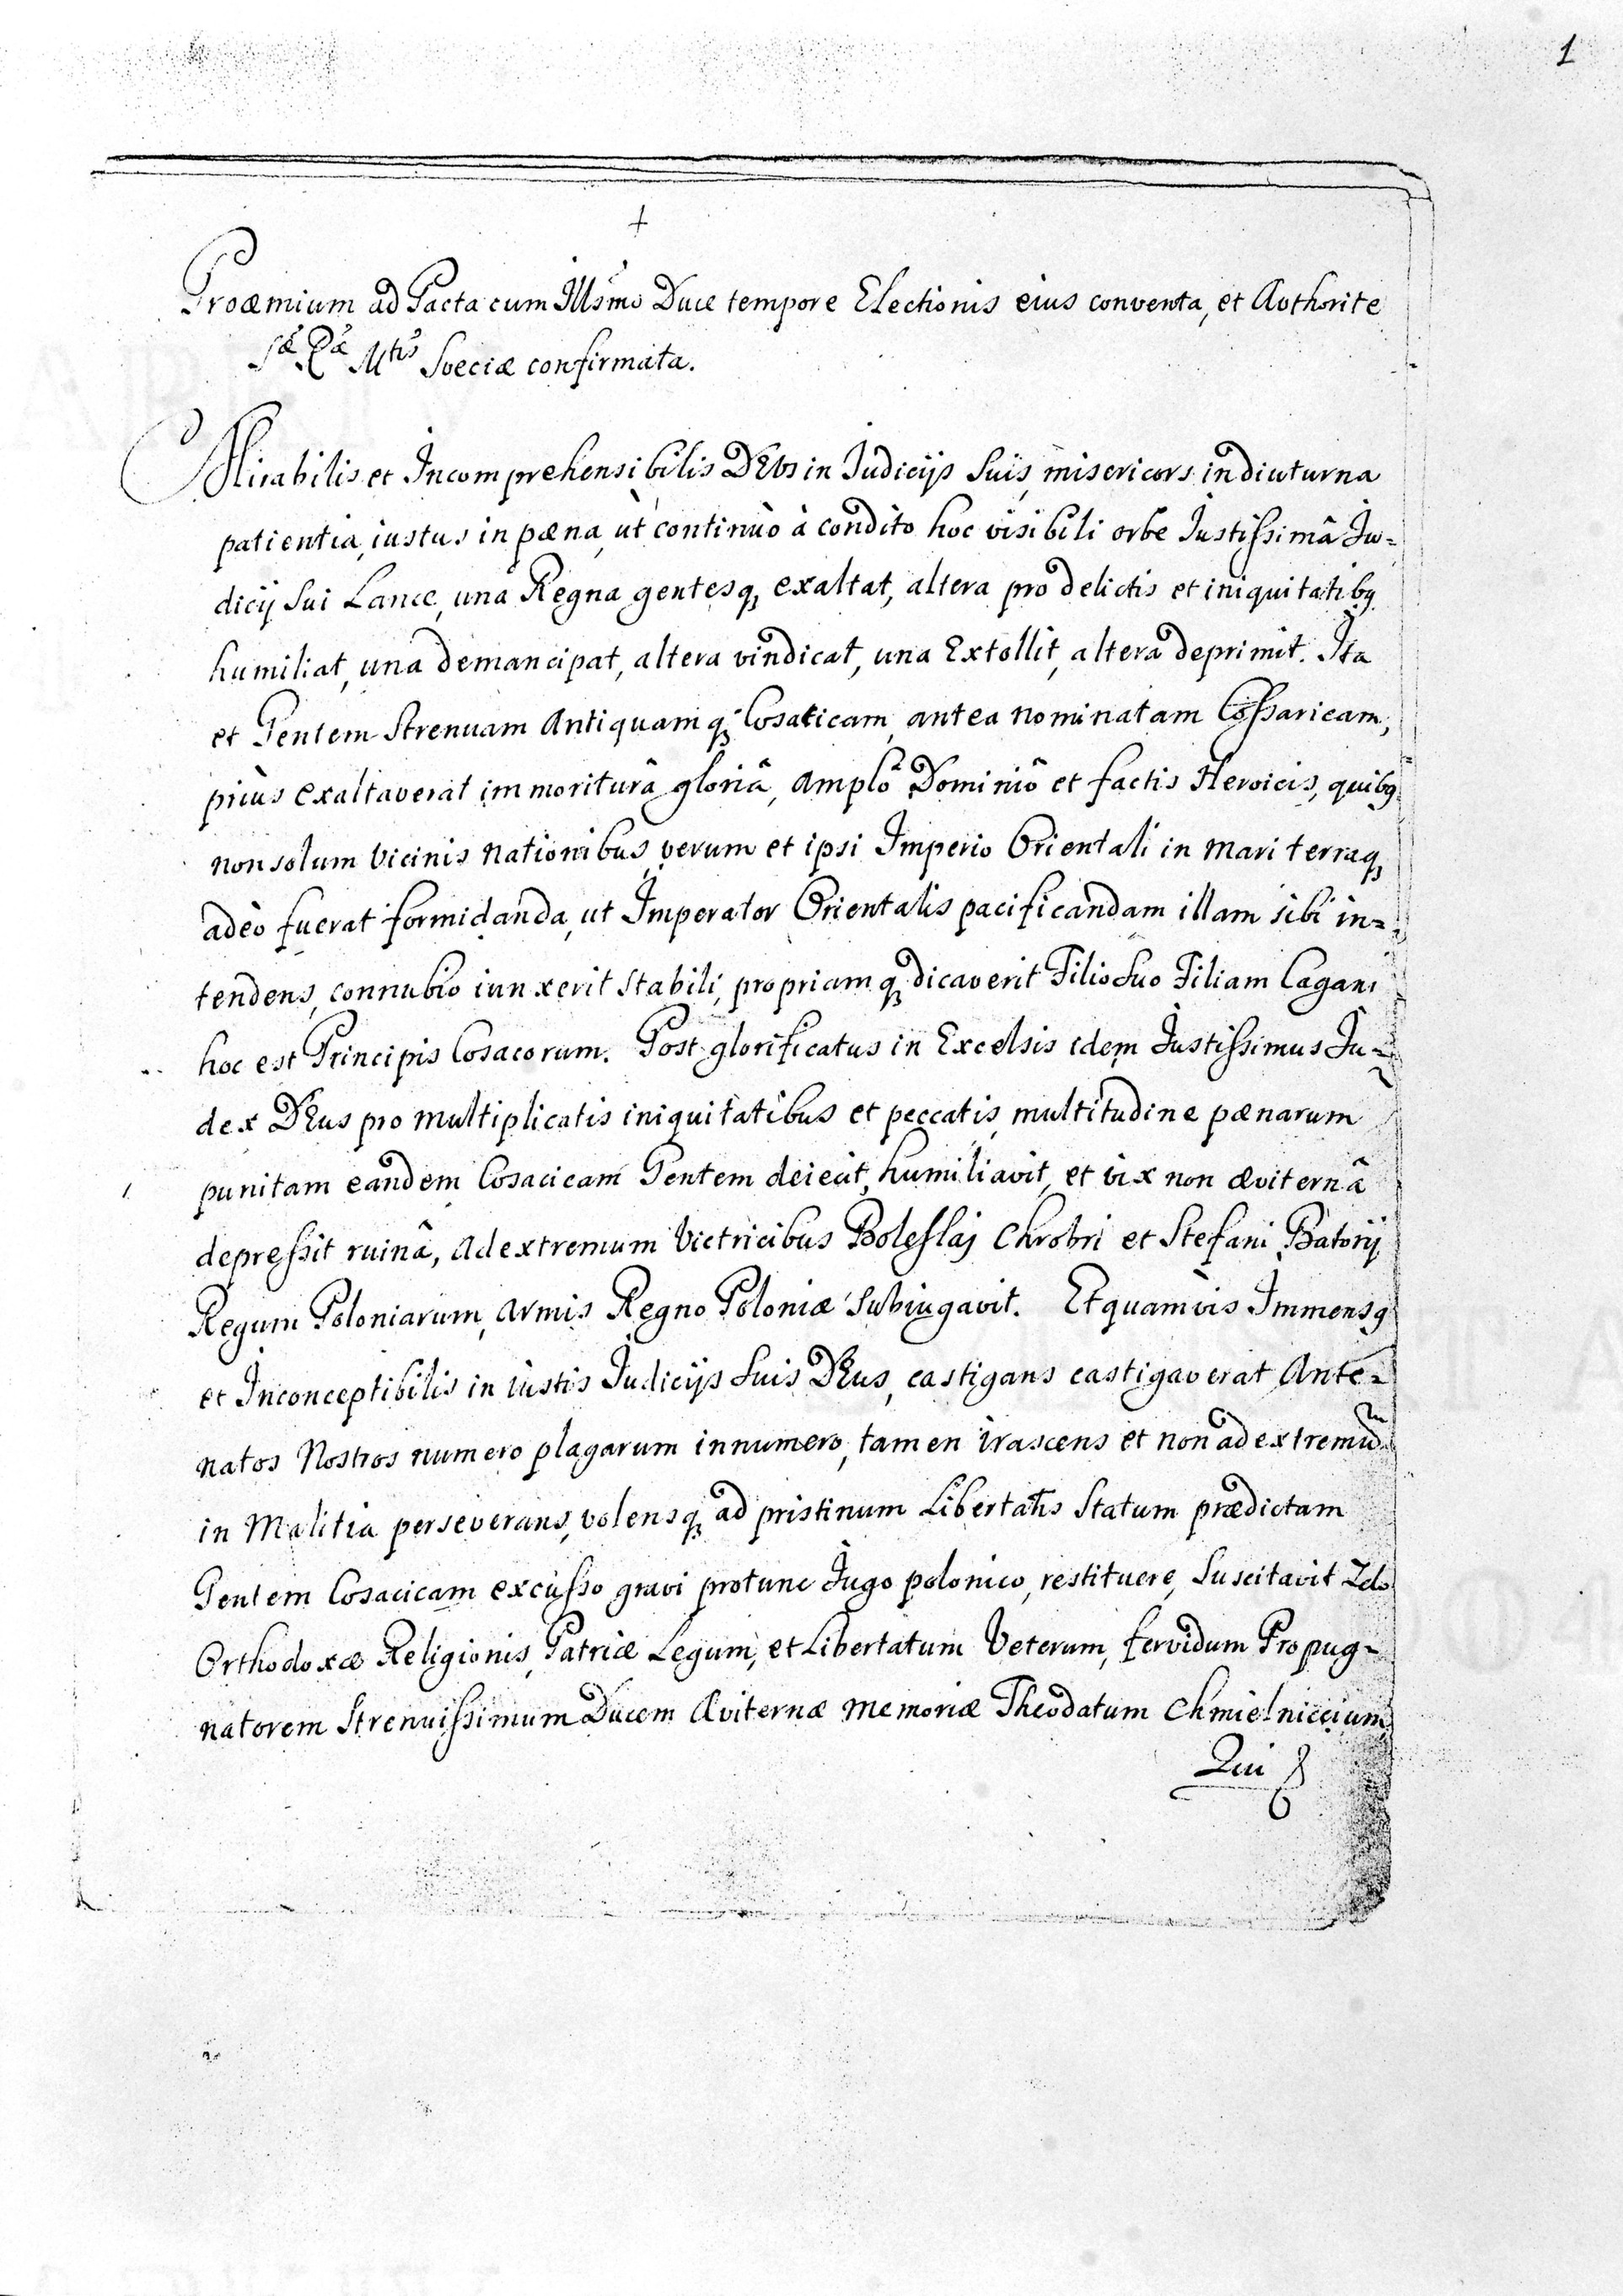 1
+
Proæmium ad Pacta cum Illsmo Duce tempore Electionis eius conventa, et Authorite
Sæ Ræ Mtis Sveciæ confirmata.
Mirabilis et Incomprehensibilis DEUs in Judicijs Suis, misericors in diuturna
patientia, iustus in pæna, ùt continùo à condito hoc visibili orbe Justissimâ Ju=
dicij Sui Lance, una Regna gentesq, exaltat, altera pro delictis et iniquitatibq
humiliat, una demancipat, altera vindicat, una Extollit, altera deprimit. Ita
et Gentem Strenuam Antiquamq, Cosaticam, antea nominatam Cossaricam,
priùs exaltaverat immoriturâ gloriâ, amplô Dominiô et factis Heroicis, quibq
non solum Vicinis nationibus, verum et ipsi Imperio Orientali in mari terraq,
adeò fuerat formidanda, ut Imperator Orientalis pacificandam illam sibi in=
tendens, connubio iunxerit stabili, propriamq, dicaverit Filio Suo Filiam Cagani
hoc est Principis Cosacorum. Post glorificatus in Excelsis idem Justissimus Ju=
dex DEus pro multiplicatis iniquitatibus et peccatis, multitudine pænarum
punitam eandem Cosacicam Gentem deiecit, humiliavit, et vix non æviternâ
depressit ruinâ, ad extremum Victricibus Boleslaj Chrobri et Stefani Batorij
Regum Poloniarum, armis Regno Poloniæ Subiugavit. Et quamvis Immensq
et Inconceptibilis in iustis Judicijs Suis DEus, castigans castigaverat Ante=
natos Nostros numero plagarum innumero, tamen irascens et non ad extremū
in Malitia perseverans, volensq, ad pristinum Libertatis Statum prædictam
Gentem Cosacicam excusso gravi protunc Jugo polonico, restituere, Suscitavit Zelo
Orthodoxæ Religionis, Patriæ Legum, et Libertatum Veterum, fervidum Propug=
natorem Strenuissimum Ducem Æviternæ memoriæ Theodatum Chmielniccium,
Qui